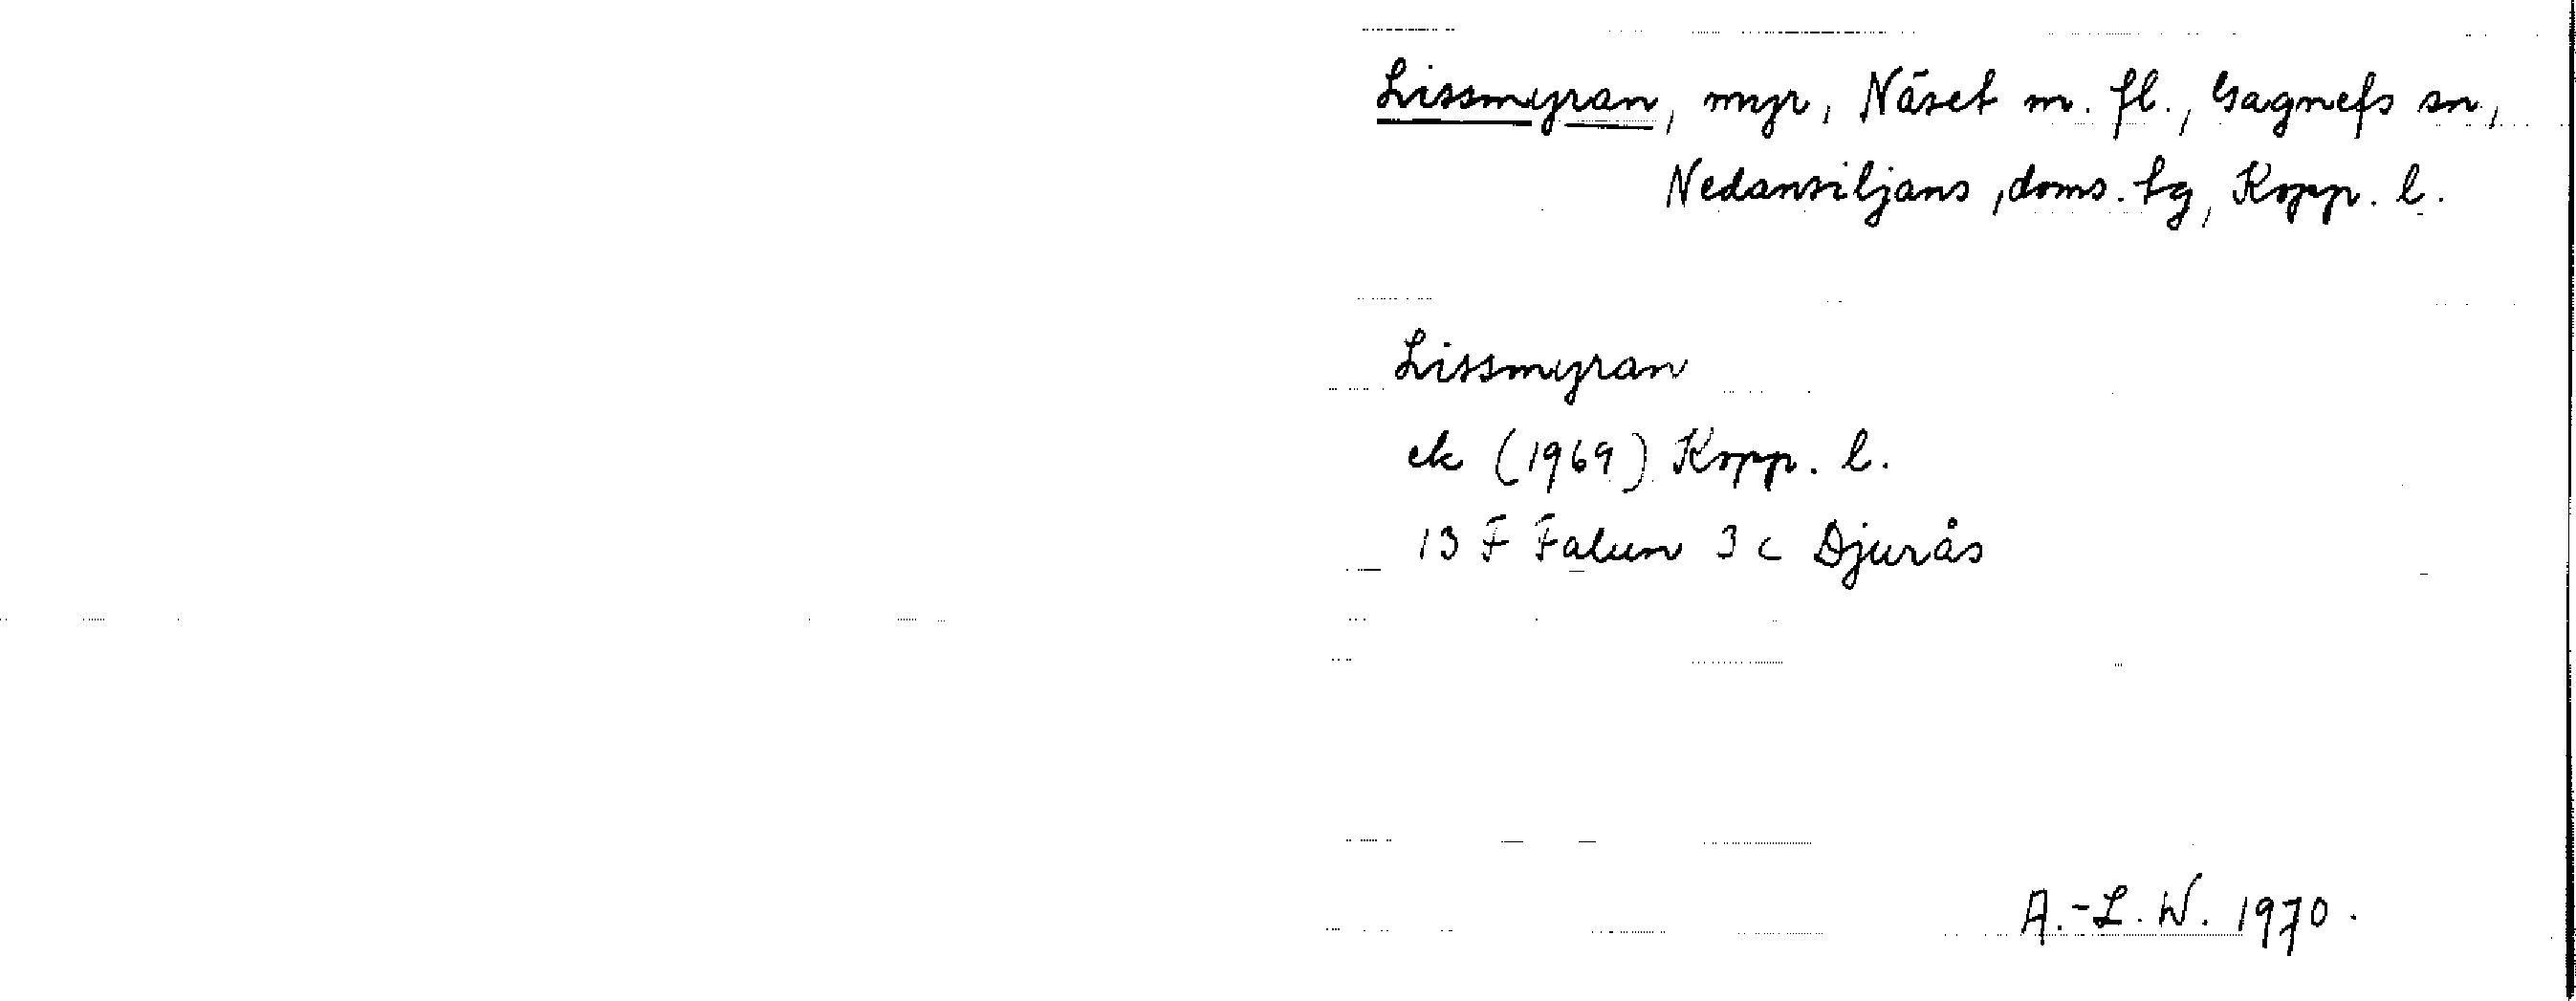 Lissmyran, myr, Näset m. fl., Gagnefs sn,
Nedansiljans, doms. tg, Kopp. l.
Lissmyran
ek (1969) Kopp. l.
13 F Falun 3 c Djurås
A.-L. W. 1970.